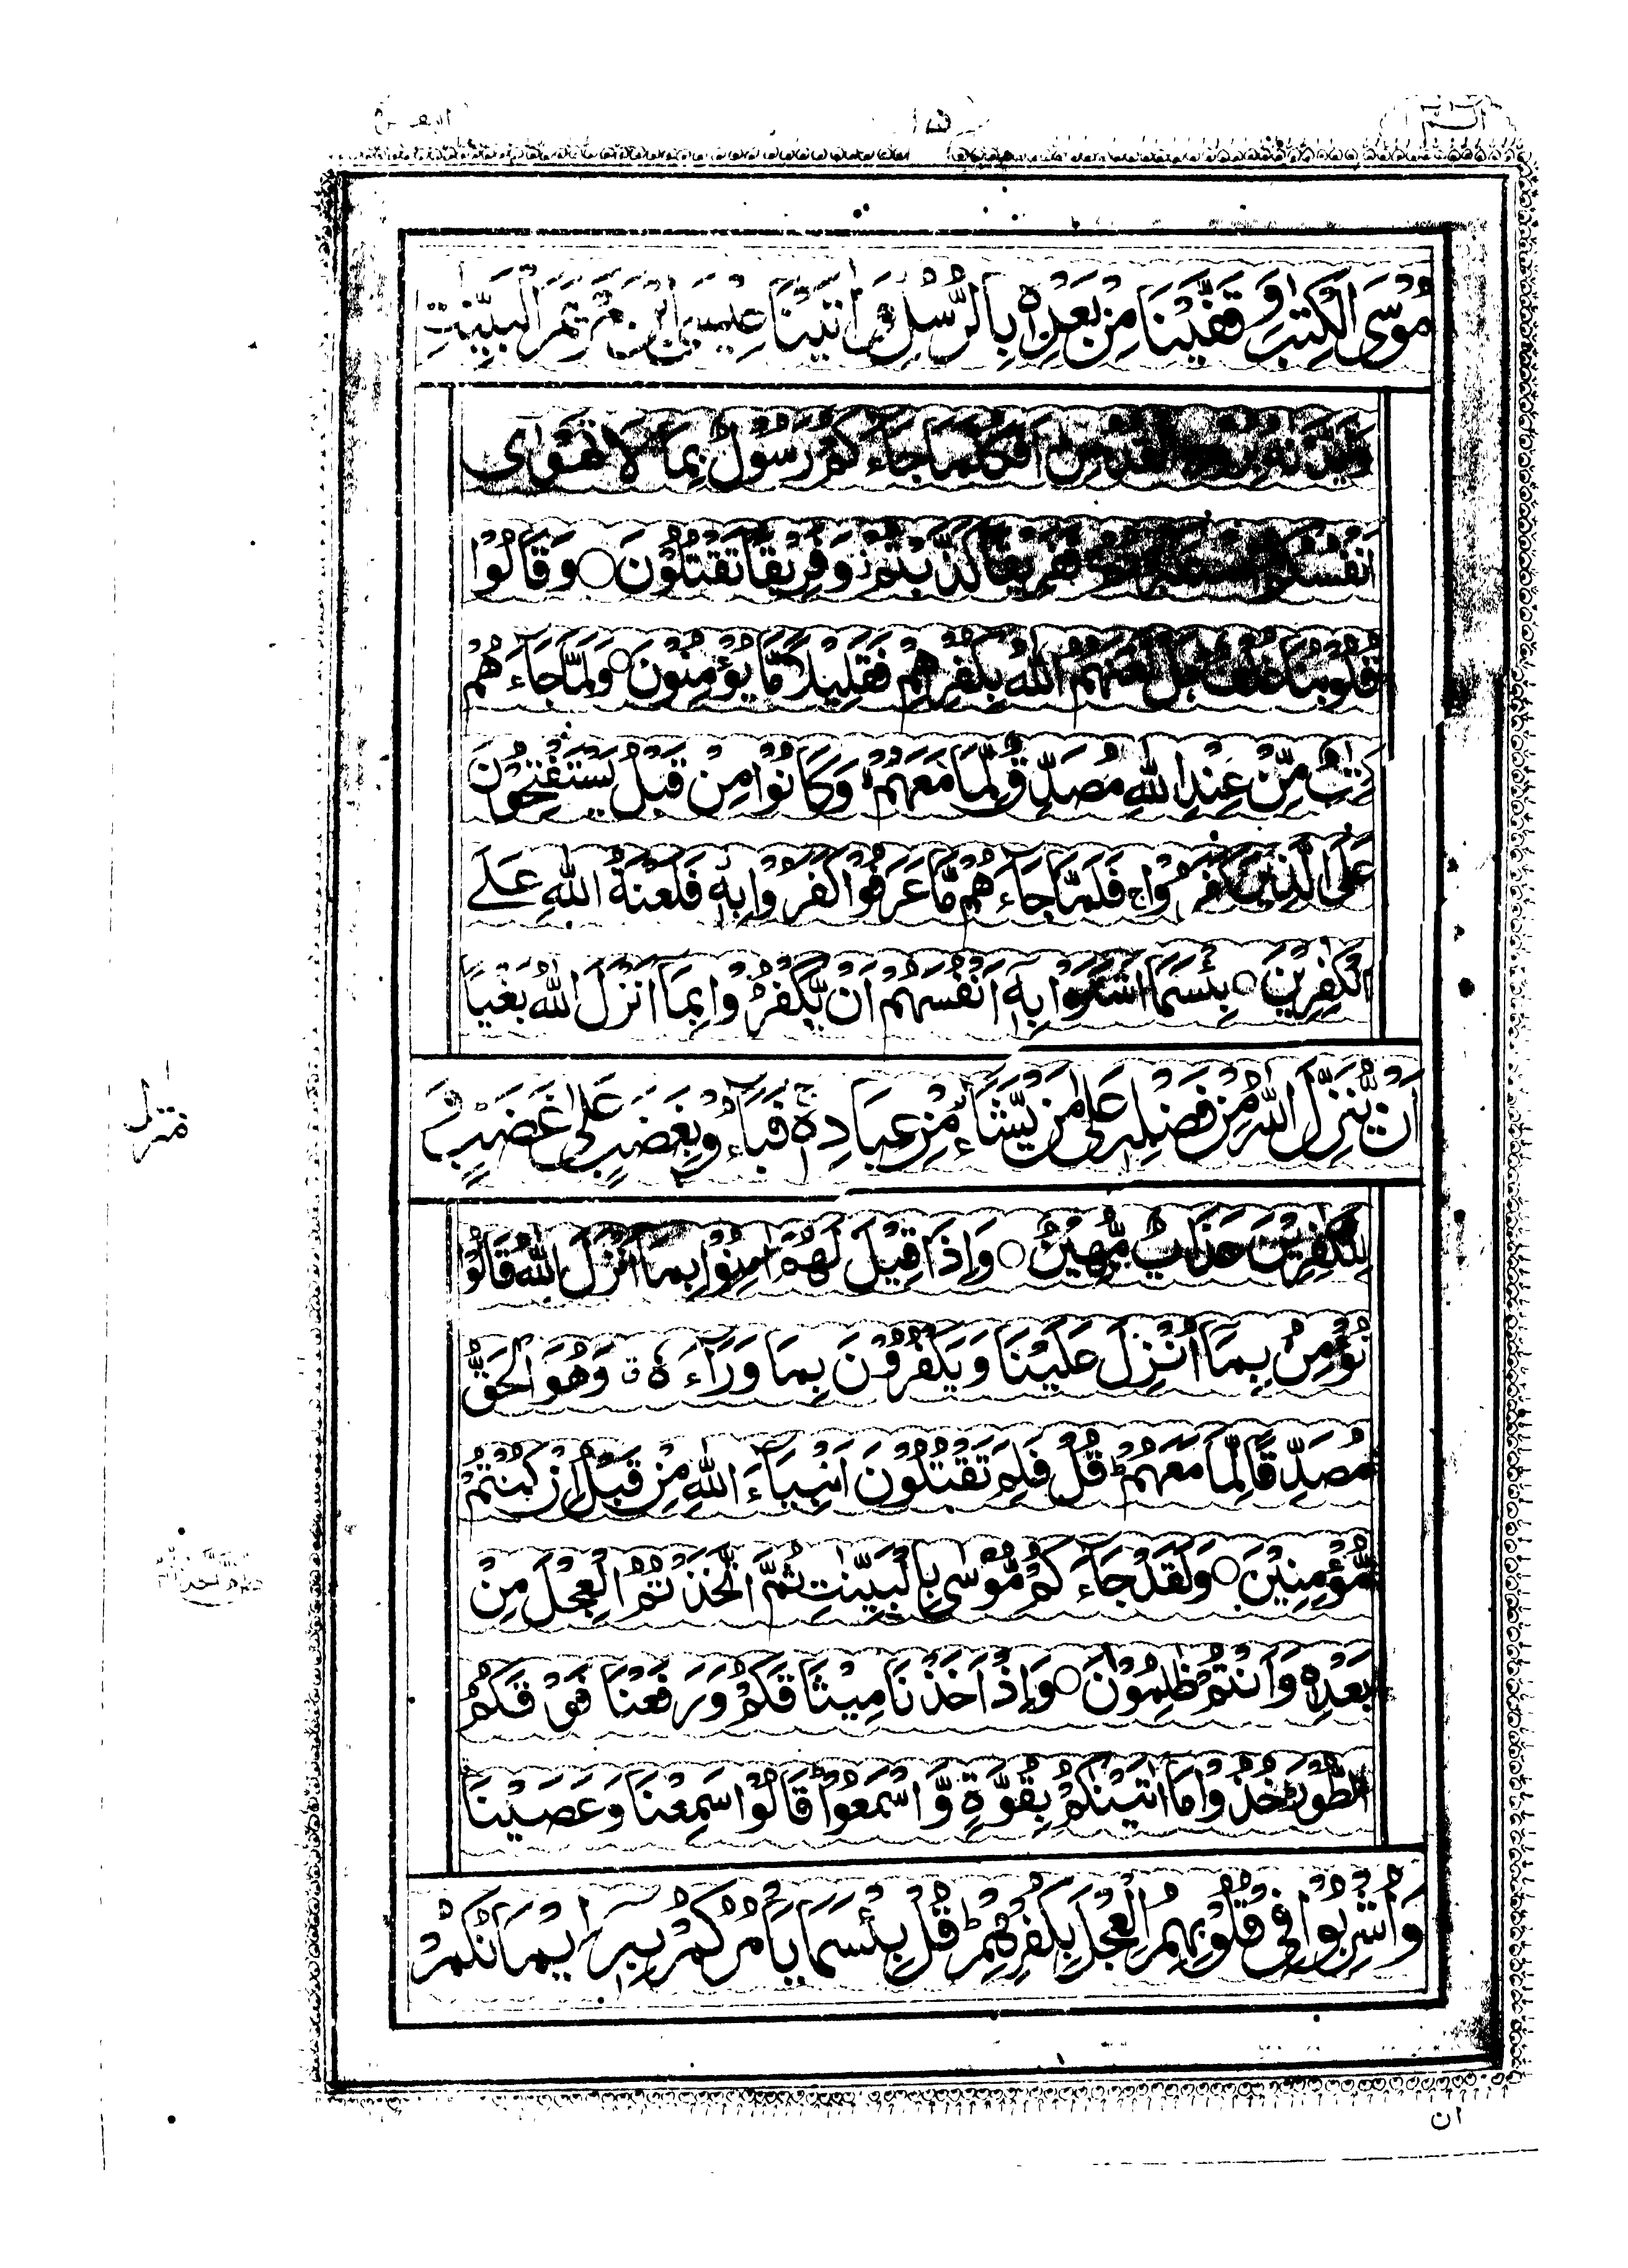 الٓمّٓ ١
١٥
البقرة
مُوْسَى الْكِتٰبَ وَقَفَّيْنَا مِنْۢ بَعْدِهٖ بِالرُّسُلِ وَاٰتَيْنَا عِيْسَى ابْنَ مَرْيَمَ الْبَيِّنٰتِ
وَاَيَّدْنٰهُ بِرُوْحِ الْقُدُسِ اَفَكُلَّمَا جَآءَكُمْ رَسُوْلٌۢ بِمَا لَا تَهْوٰٓى
اَنْفُسُكُمُ اسْتَكْبَرْتُمْ فَفَرِيْقًا كَذَّبْتُمْ ز وَفَرِيْقًا تَقْتُلُوْنَ ○ وَقَالُوْا
قُلُوْبُنَا غُلْفٌ بَلْ لَّعَنَهُمُ اللّٰهُ بِكُفْرِهِمْ فَقَلِيْلًا مَّا يُؤْمِنُوْنَ ○ وَلَمَّا جَآءَهُمْ
كِتٰبٌ مِّنْ عِنْدِ اللّٰهِ مُصَدِّقٌ لِّمَا مَعَهُمْ لا وَكَانُوْا مِنْ قَبْلُ يَسْتَفْتِحُوْنَ
عَلَى الَّذِيْنَ كَفَرُوْا ج فَلَمَّا جَآءَهُمْ مَّا عَرَفُوْا كَفَرُوْا بِهٖ فَلَعْنَةُ اللّٰهِ عَلَے
الْكٰفِرِيْنَ ○ بِئْسَمَا اشْتَرَوْا بِهٖٓ اَنْفُسَهُمْ اَنْ يَّكْفُرُوْا بِمَآ اَنْزَلَ اللّٰهُ بَغْيًا
اَنْ يُّنَزِّلَ اللّٰهُ مِنْ فَضْلِهٖ عَلٰى مَنْ يَّشَآءُ مِنْ عِبَادِهٖ ج فَبَآءُوْ بِغَضَبٍ عَلٰى غَضَبٍ وَ
لِلْكٰفِرِيْنَ عَذَابٌ مُّهِيْنٌ ○ وَاِذَا قِيْلَ لَهُمْ اٰمِنُوْا بِمَآ اَنْزَلَ اللّٰهُ قَالُوْا
نُؤْمِنُ بِمَآ اُنْزِلَ عَلَيْنَا وَيَكْفُرُوْنَ بِمَا وَرَآءَهٗ ق وَهُوَ الْحَقُّ
مُصَدِّقًا لِّمَا مَعَهُمْ ط قُلْ فَلِمَ تَقْتُلُوْنَ اَنْۢبِيَآءَ اللّٰهِ مِنْ قَبْلُ اِنْ كُنْتُمْ
مُّؤْمِنِيْنَ ○ وَلَقَدْ جَآءَكُمْ مُّوْسٰى بِالْبَيِّنٰتِ ثُمَّ اتَّخَذْتُمُ الْعِجْلَ مِنْ
بَعْدِهٖ وَاَنْتُمْ ظٰلِمُوْنَ ○ وَاِذْ اَخَذْنَا مِيْثَاقَكُمْ وَرَفَعْنَا فَوْقَكُمُ
الطُّوْرَ ط خُذُوْا مَآ اٰتَيْنٰكُمْ بِقُوَّةٍ وَّاسْمَعُوْا ط قَالُوْا سَمِعْنَا وَعَصَيْنَا
وَاُشْرِبُوْا فِيْ قُلُوْبِهِمُ الْعِجْلَ بِكُفْرِهِمْ ط قُلْ بِئْسَمَا يَاْمُرُكُمْ بِهٖٓ اِيْمَانُكُمْ
ان
منزل ١